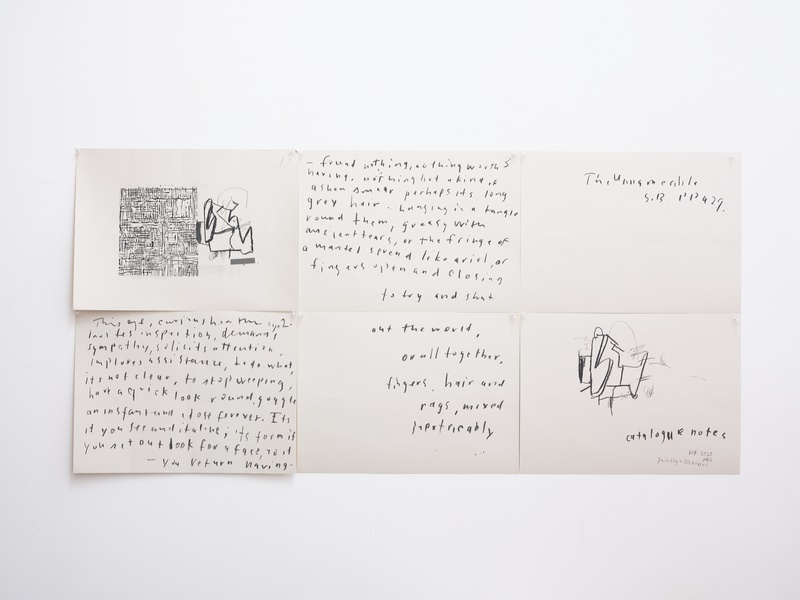 This eye, curious how the eye
invites inspection, demands
sympathy, solicits attention,
implores assistance, to do what,
its not clear, to stop weeping,
have a quick look round, goggle
an instant and close forever. Its
it you see and it alone; its from it
you set out look for a face, to it
— you return having-
- found nothing, nothing worth
having, nothing but a kind of
ashen smear perhaps its long
grey hair. hanging in a tangle
round them, greasy with
ancient tears, or the fringe of
a mantel spread like a veil, or
fingers open and closing
to try and shut
out the world,
or all together,
fingers, hair and
rags, mixed
inextricably
The Unnameable
S.B. PP 429.
catalogue notes